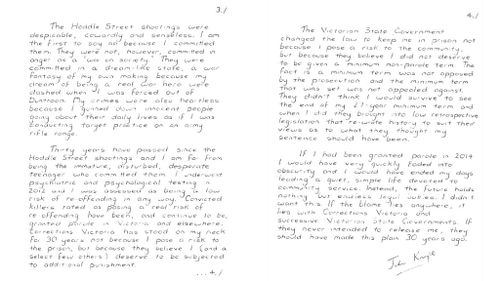 3./
The Hoddle Street shootings were
despicable, cowardly and senseless. I am
the first to say so because I committed
them. They were not, however, committed in
anger as a 'war on society'. They were
committed in a dream-like state, a war
fantasy of my own making because my
dream of being a real war hero were
dashed when I was forced out of
Duntroon. My crimes were also heartless
because I gunned down innocent people
going about their daily lives as if I was
conducting target practice on an army
rifle range.
Thirty years have passed since the
Hoddle Street shootings and I am far from
being the immature, disturbed, desperate
teenager who committed them. I underwent
psychiatric and psychological testing in
2012 and I was assessed as being a low
risk of re-offending in any way. Convicted
killers rated as posing a real risk of
re-offending have been, and continue to be,
granted parole in Victoria and elsewhere.
Corrections Victoria has stood on my neck
for 30 years not because I pose a risk to
the prison, but because they believe I (and a
select few others) deserve to be subjected
to additional punishment.
...4./
4./
The Victorian State Government
changed the law to keep me in prison not
because I pose a risk to the community,
but because they believe I did not deserve
to be given a minimum non-parole term. The
fact is a minimum term was not opposed
by the prosecution and the minimum term
that was set was not appealed against.
They didn't think I would survive to see
the end of my 27-year minimum term and
when I did they brought into law retrospective
legislation that re-wrote history to suit their
views as to what they thought my
sentence should have been.
If I had been granted parole in 2014
I would have very quickly faded into
obscurity and I would have ended my days
leading a quiet, simple life devoted to
community service. Instead, the future holds
nothing but endless legal battles. I didn't
want this. If the blame lies anywhere, it
lies with Corrections Victoria and
successive Victorian State Governments. If
they never intended to release me, they
should have made this plain 30 years ago.